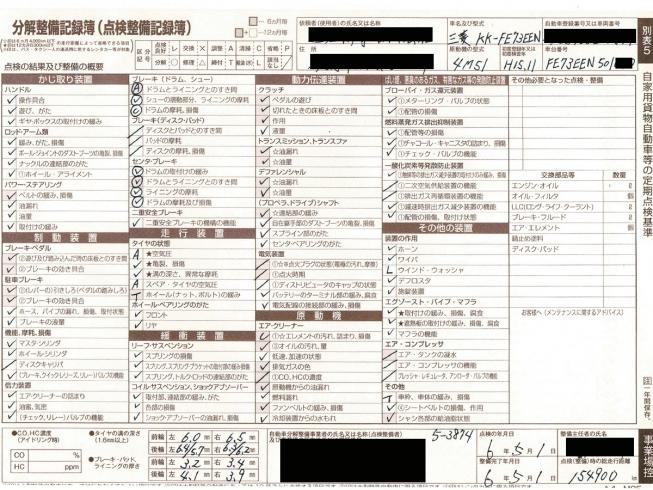 分解整備記録簿（点検整備記録簿）
別表5
自家用貨物自動車等の定期点検基準
依頼者(使用者)の氏名又は名称
住所
車名及び型式
三菱 KK-FE73EEN
自動車登録番号又は車両番号
原動機の型式
4M51
H15.11
車台番号
FE73EEN 501
点検の結果及び整備の概要
区分 記号
点検良好 レ 交換 × 調整 A 清掃 C 省略 P
分解 ○ 修理 △ 締付 T 給油(液) L 該当なし /
かじ取り装置
ハンドル
操作具合
遊び、がた
ギヤ・ボックスの取付けの緩み
ロッド・アーム類
緩み、がた、損傷
ボールジョイントのダストブーツの亀裂、損傷
ナックルの連結部のがた
①ホイール・アライメント
パワー・ステアリング
ベルトの緩み、損傷
油漏れ
油量
取付けの緩み
制動装置
ブレーキ・ペダル
②遊び及び踏み込んだ時の床板とのすき間
②ブレーキの効き具合
駐車ブレーキ
②レバーの引きしろ(ペダルの踏みしろ)
②ブレーキの効き具合
ホース、パイプの漏れ、損傷、取付状態
ブレーキの液量
機能、摩耗、損傷
マスタ・シリンダ
ホイール・シリンダ
ディスク・キャリパ
(ブレーキ、クイックレリーズ、リレー)バルブの機能
倍力装置
エア・クリーナーの詰まり
油漏、気密
(チェック、リレー)バルブの機能
ブレーキ(ドラム、シュー)
A ドラムとライニングとのすき間
シューの摺動部分、ライニングの摩耗
C ドラムの摩耗、損傷
ブレーキ(ディスク・パッド)
ディスクとパッドとのすき間
パッドの摩耗
ディスクの摩耗、損傷
センタ・ブレーキ
ドラムの取付けの緩み
ドラムとライニングとのすき間
ライニングの摩耗
ドラムの摩耗及び損傷
二重安全ブレーキ
二重安全ブレーキの機構の機能
走行装置
タイヤの状態
A ★空気圧
★亀裂、損傷
★溝の深さ、異常な摩耗
A スペア・タイヤの空気圧
T ホイール(ナット、ボルト)の緩み
ホイール・ベアリングのがた
フロント
リヤ
緩衝装置
リーフ・サスペンション
スプリングの損傷
スプリング、スプリングブラケットの取付部の緩み損傷
スプリング、トルクロッドの連結部のがた
コイルサスペンション、ショックアブソーバー
取付部、連結部の緩み、がた
各部の損傷
ショック・アブソーバーの油漏れ、損傷
動力伝達装置
クラッチ
ペダルの遊び
切れたときの床板とのすき間
作用
液量
トランスミッション、トランスファ
☆油漏れ
☆油量
デファレンシャル
☆油漏れ
☆油量
(プロペラ、ドライブ)シャフト
☆連結部の緩み
自在継手部のダスト・ブーツの亀裂、損傷
スプライン部のがた
センタ・ベアリングのがた
電気装置
①☆※点火プラグの状態(電極の汚れ、摩擦)
①点火時期
①ディストリビュータのキャップの状態
バッテリのターミナル部の緩み、腐食
電気配線の接続部の緩み、損傷
原動機
エア・クリーナー
①☆エレメントの汚れ、詰まり、損傷
③オイルの汚れ、量
低速、加速の状態
排気ガスの色
①CO、HCの濃度
原動機からの油漏れ
燃料漏れ
ファンベルトの緩み、損傷
冷却装置からの水もれ
ばい煙、悪臭のあるガス、有害なガス等の発散防止装置
ブローバイ・ガス還元装置
①メターリング・バルブの状態
①配管の損傷
燃料蒸発ガス排出抑制装置
①配管等の損傷
①チャコール・キャニスタの詰まり、損傷
①チェック・バルブの機能
一酸化炭素等発散防止装置
①二次空気供給装置の機能
①排出ガス再循環装置の機能
①減速時排出ガス減少装置の機能
①配管の損傷、取付け状態
その他の装置
装置の作用
ホーン
ワイパ
L ウインド・ウォッシャ
デフロスタ
施錠装置
エグゾースト・パイプ・マフラ
★取付けの緩み、損傷、腐食
★遮熱板の取付けの緩み、損傷、腐食
マフラの機能
エア・コンプレッサ
エア・タンクの凝水
エア・コンプレッサの機能
プレッシャ・レギュレータ、アンローダ・バルブの機能
その他
T 車枠、車体の緩み、損傷
④シートベルトの損傷、作用
シャシ各部の給油脂状態
その他必要となった点検・整備
交換部品等 数量
エンジン・オイル ℓ
オイル・フィルタ 個
LLC(ロング・ライフ・クーラント) ℓ
ブレーキ・フルード ℓ
エア・エレメント 個
錆止め塗料
ディスク・パッド
お客様へ(メンテナンスに関するアドバイス)
注 一年間保存。
事業場控
●CO、HC濃度
(アイドリング時)
CO %
HC ppm
●タイヤの溝の深さ
(1.6mm以上)
前輪 左 6.0 mm 右 6.5 mm
後輪 左 6.4/5.7 mm 右 6.3/6.2 mm
●ブレーキ・パッド、ライニングの厚さ
前輪 左 3.2 mm 右 3.4 mm
後輪 左 4.1 mm 右 3.9 mm
自動車分解整備事業者の氏名又は名称(点検者)
5-3874
点検の年月日
6年5月1日
整備完了年月日
6年5月1日
整備主任者の氏名
点検(整備)時の総走行距離
154900 km